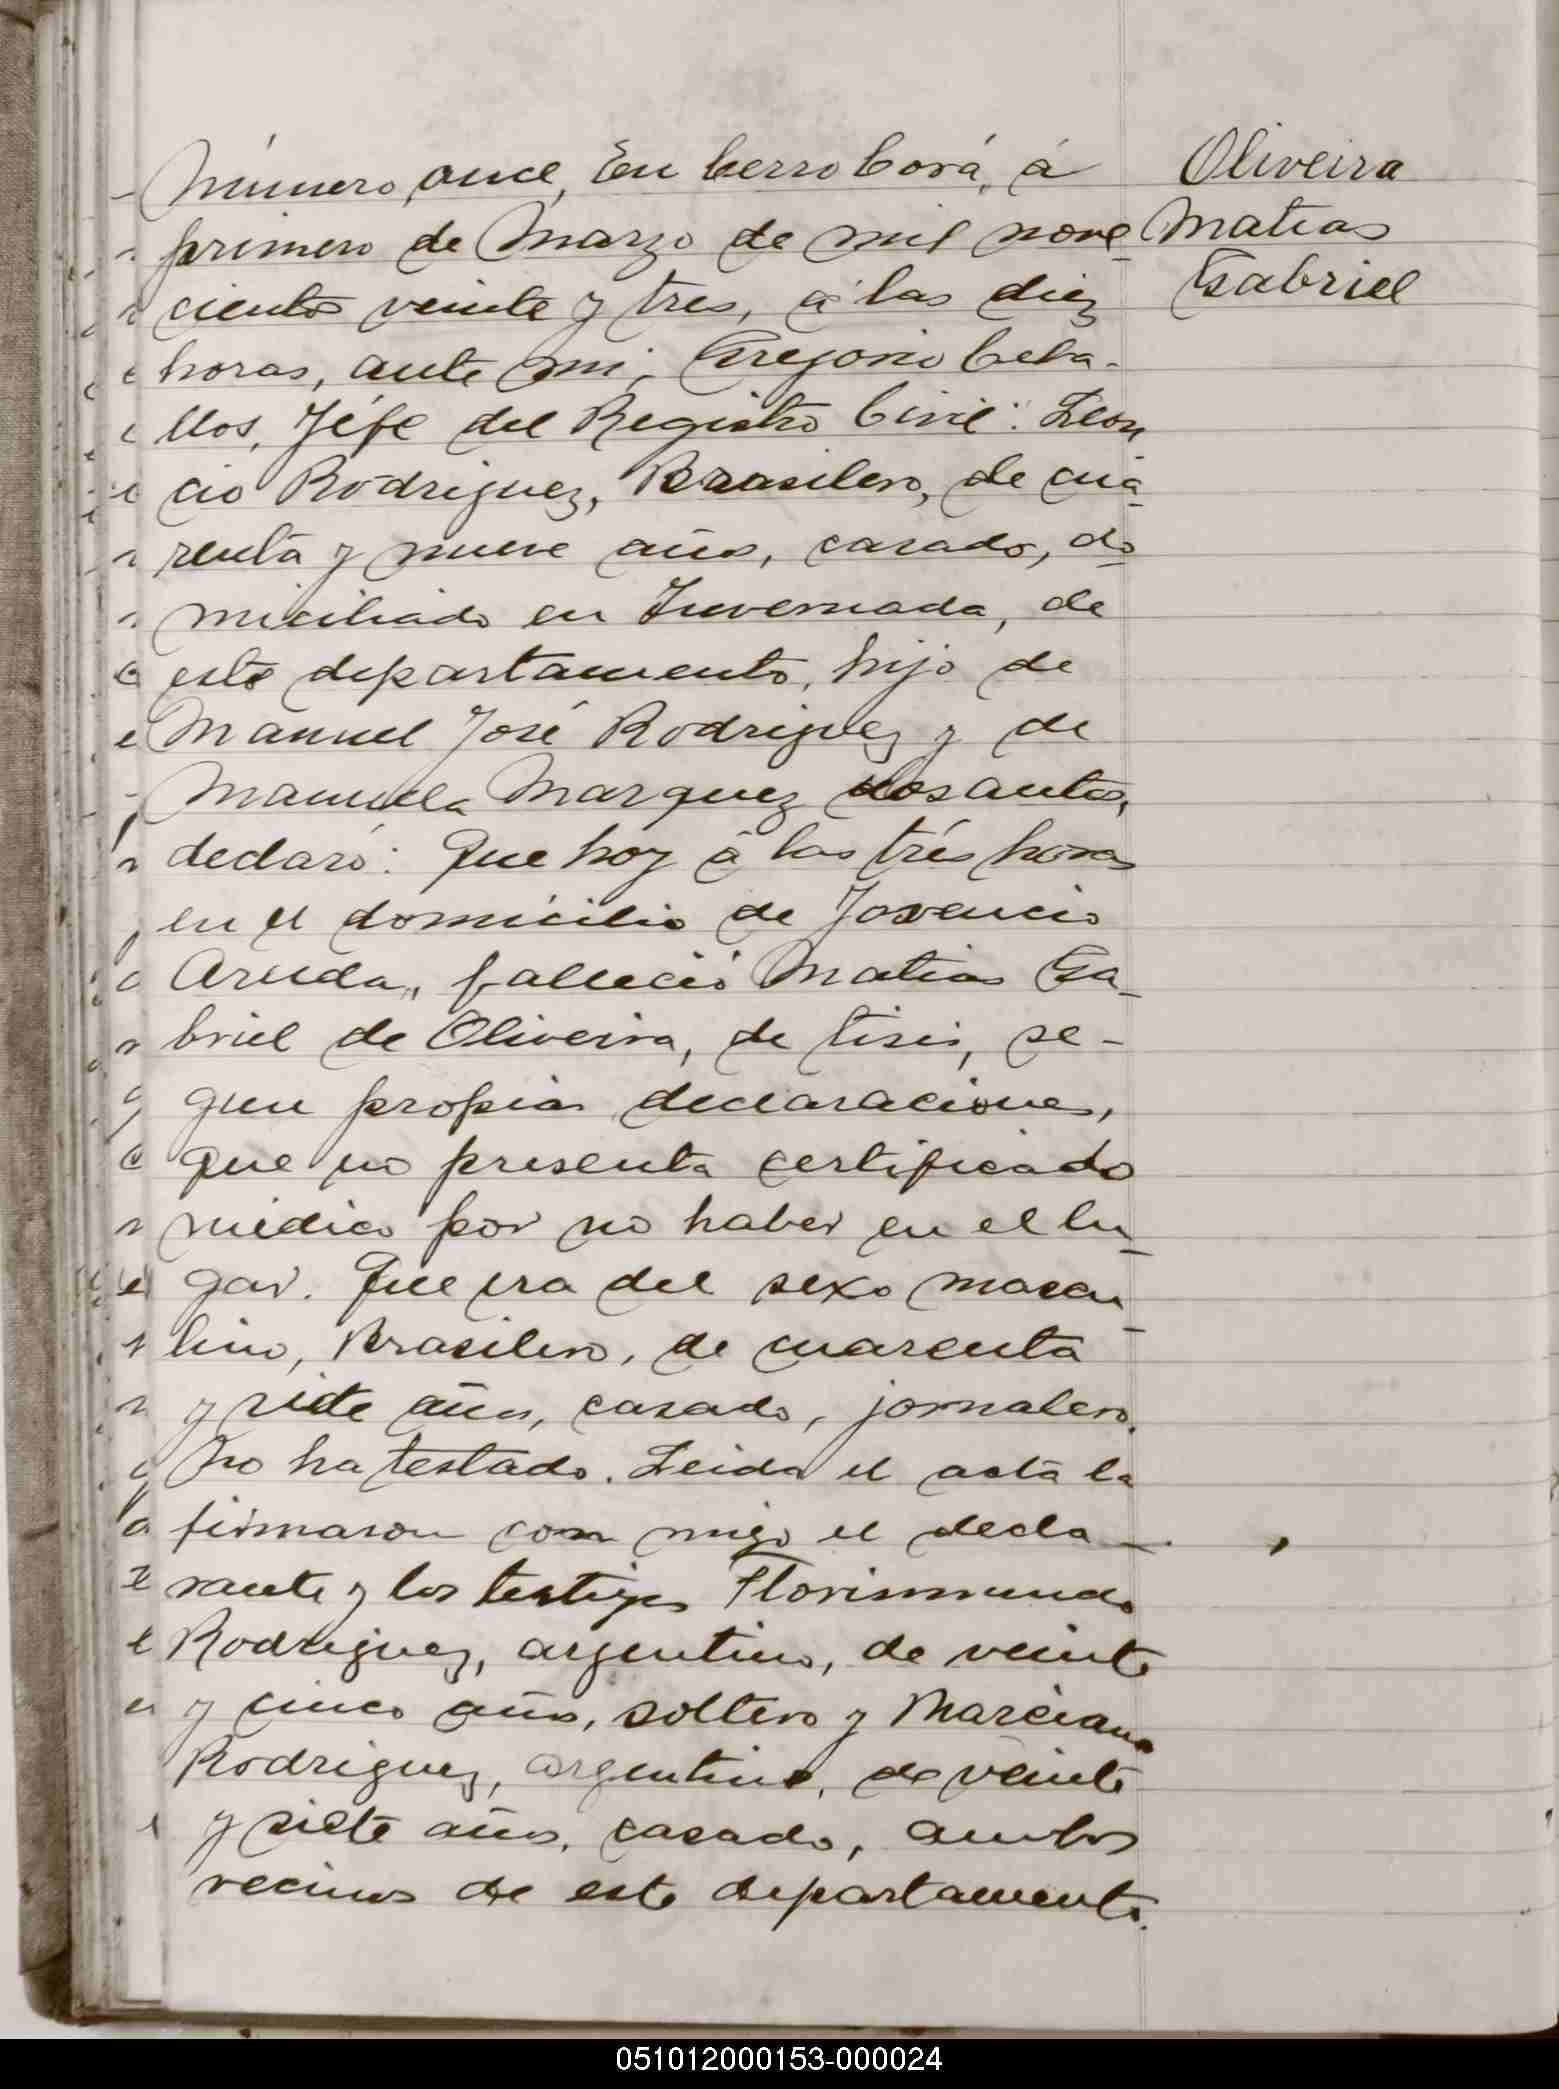 Número once, En Cerro Corá, á
primero de Marzo de mil nove
cientos veinte y tres, á las diez
horas, ante mi, Gregorio Ceba-
llos, Jéfe del Registro Civil: Leon
cio Rodriguez, Brasilero, de cua-
renta y nueve años, casado, do
miciliado en Invernada, de
este departamento, hijo de
Manuel José Rodriguez y de
Manuela Marquez dosantos,
declaró: Que hoy á las trés horas
en el domicilio de Jovencio
Aruda, falleció Matias Ga-
briel de Oliveira, de tisis, se-
gun propias declaraciones,
que no presenta certificado
médico por no haber en el lu-
gar. Que era del sexo mascu-
lino, Brasilero, de cuarenta
y siete años, casado, jornalero.
No ha testado. Leida el acta la
firmaron con migo el decla-
rante y los testigos Florismundo
Rodriguez, argentino, de veinte
y cinco años, soltero y Marciano
Rodriguez, argentino, de veinte
y siete años, casado, ambos
vecinos de este departamento.
Oliveira
Matias
Gabriel
051012000153-000024